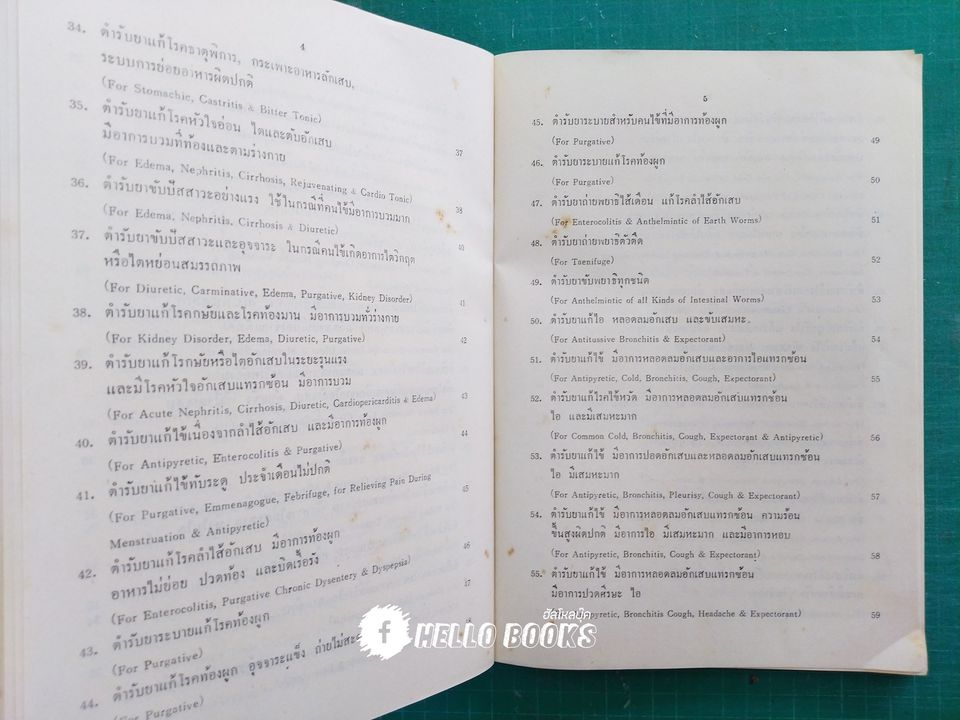 4
34. ตำรับยาแก้โรคธาตุพิการ, กระเพาะอาหารอักเสบ,
ระบบการย่อยอาหารผิดปกติ
(For Stomachic, Castritis & Bitter Tonic) 37
35. ตำรับยาแก้โรคหัวใจอ่อน ไตและตับอักเสบ
มีอาการบวมที่ท้องและตามร่างกาย
(For Edema, Nephritis, Cirrhosis, Rejuvenating & Cardio Tonic) 38
36. ตำรับยาขับปัสสาวะอย่างแรง ใช้ในกรณีที่คนไข้มีอาการบวมมาก
(For Edema, Nephritis, Cirrhosis & Diuretic) 40
37. ตำรับยาขับปัสสาวะและอุจจาระ ในกรณีคนไข้เกิดอาการไตวิกฤต
หรือไตหย่อนสมรรถภาพ
(For Diuretic, Carminative, Edema, Purgative, Kidney Disorder) 41
38. ตำรับยาแก้โรคกษัยและโรคท้องมาน มีอาการบวมทั่วร่างกาย
(For Kidney Disorder, Edema, Diuretic, Purgative) 42
39. ตำรับยาแก้โรกษัยหรือไตอักเสบในระยะรุนแรง
และมีโรคหัวใจอักเสบแทรกซ้อน มีอาการบวม
(For Acute Nephritis, Cirrhosis, Diuretic, Cardiopericarditis & Edema) 43
40. ตำรับยาแก้ไข้เนื่องจากลำไส้อักเสบ และมีอาการท้องผูก
(For Antipyretic, Enterocolitis & Purgative) 44
41. ตำรับยาแก้ไข้ทับระดู ประจำเดือนไม่ปกติ
(For Purgative, Emmenagogue, Febrifuge, for Relieving Pain During
Menstruation & Antipyretic) 45
42. ตำรับยาแก้โรคลำไส้อักเสบ มีอาการท้องผูก
อาหารไม่ย่อย ปวดท้อง และบิดเรื้อรัง
(For Enterocolitis, Purgative Chronic Dysentery & Dyspepsia) 46
43. ตำรับยาระบายแก้โรคท้องผูก
(For Purgative) 47
44. ตำรับยาแก้โรคท้องผูก อุจจาระแข็ง ถ่ายไม่สะ
(For Purgative)
5
45. ตำรับยาระบายสำหรับคนไข้ที่มีอาการท้องผูก
(For Purgative) 49
46. ตำรับยาระบายแก้โรคท้องผูก
(For Purgative) 50
47. ตำรับยาถ่ายพยาธิไส้เดือน แก้โรคลำไส้อักเสบ
(For Enterocolitis & Anthelmintic of Earth Worms) 51
48. ตำรับยาถ่ายพยาธิตัวตืด
(For Taenifuge) 52
49. ตำรับยาขับพยาธิทุกชนิด
(For Anthelmintic of all Kinds of Intestinal Worms) 53
50. ตำรับยาแก้ไอ หลอดลมอักเสบ และขับเสมหะ
(For Antitussive Bronchitis & Expectorant) 54
51. ตำรับยาแก้ไข้ มีอาการหลอดลมอักเสบและอาการไอแทรกซ้อน
(For Antipyretic, Cold, Bronchitis, Cough, Expectorant) 55
52. ตำรับยาแก้โรคไข้หวัด มีอาการหลอดลมอักเสบแทรกซ้อน
ไอ และมีเสมหะมาก
(For Common Cold, Bronchitis, Cough, Expectorant & Antipyretic) 56
53. ตำรับยาแก้ไข้ มีอาการปอดอักเสบและหลอดลมอักเสบแทรกซ้อน
ไอ มีเสมหะมาก
(For Antipyretic, Bronchitis, Pleurisy, Cough & Expectorant) 57
54. ตำรับยาแก้ไข้ มีอาการหลอดลมอักเสบแทรกซ้อน ความร้อน
ขึ้นสูงผิดปกติ มีอาการไอ มีเสมหะมาก และมีอาการหอบ
(For Antipyretic, Bronchitis, Cough & Expectorant) 58
55. ตำรับยาแก้ไข้ มีอาการหลอดลมอักเสบแทรกซ้อน
มีอาการปวดศีรษะ ไอ
pyretic, Bronchitis Cough, Headache & Expectorant) 59
ฮัลโหลบุ๊ค
f HELLO BOOKS